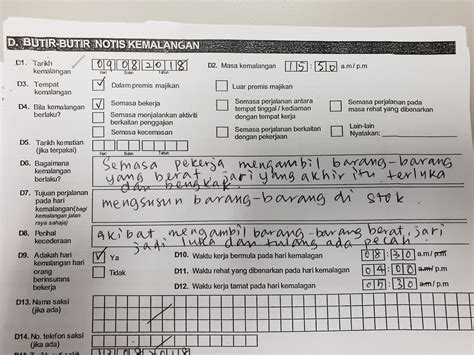 D. BUTIR-BUTIR NOTIS KEMALANGAN
D1. Tarikh kemalangan 09082018 D2. Masa kemalangan 15:50 a.m/p.m
Hari Bulan Tahun
D3. Tempat kemalangan ✓ Dalam premis majikan Luar premis majikan
D4. Bila kemalangan berlaku? ✓ Semasa bekerja Semasa perjalanan antara tempat tinggal / kediaman dengan tempat kerja Semasa perjalanan pada masa rehat yang dibenarkan
Semasa menjalankan aktiviti berkaitan penggajian
Semasa kecemasan Semasa perjalanan berkaitan dengan pekerjaan Lain-lain Nyatakan:
D5. Tarikh kematian (jika terpakai)
D6. Bagaimana kemalangan berlaku? Semasa pekerja mengambil barang-barang
yang berat, jari yang akhir itu terluka
dan bengkak.
D7. Tujuan perjalanan pada hari kemalangan (bagi kemalangan jalan raya sahaja) mengsusun barang-barang di stok.
D8. Perihal kecederaan Akibat mengambil barang-barang berat, jari
jadi luka dan tulang ada pecah.
D9. Adakah hari kemalangan hari orang berinsurans bekerja ✓ Ya D10. Waktu kerja bermula pada hari kemalangan 08:30 a.m/p.m
Tidak D11. Waktu rehat yang dibenarkan pada hari kemalangan 04:00 a.m/p.m
D12. Waktu kerja tamat pada hari kemalangan 05:30 a.m/p.m
D13. Nama saksi (jika ada)
D14. No. telefon saksi (jika ada)